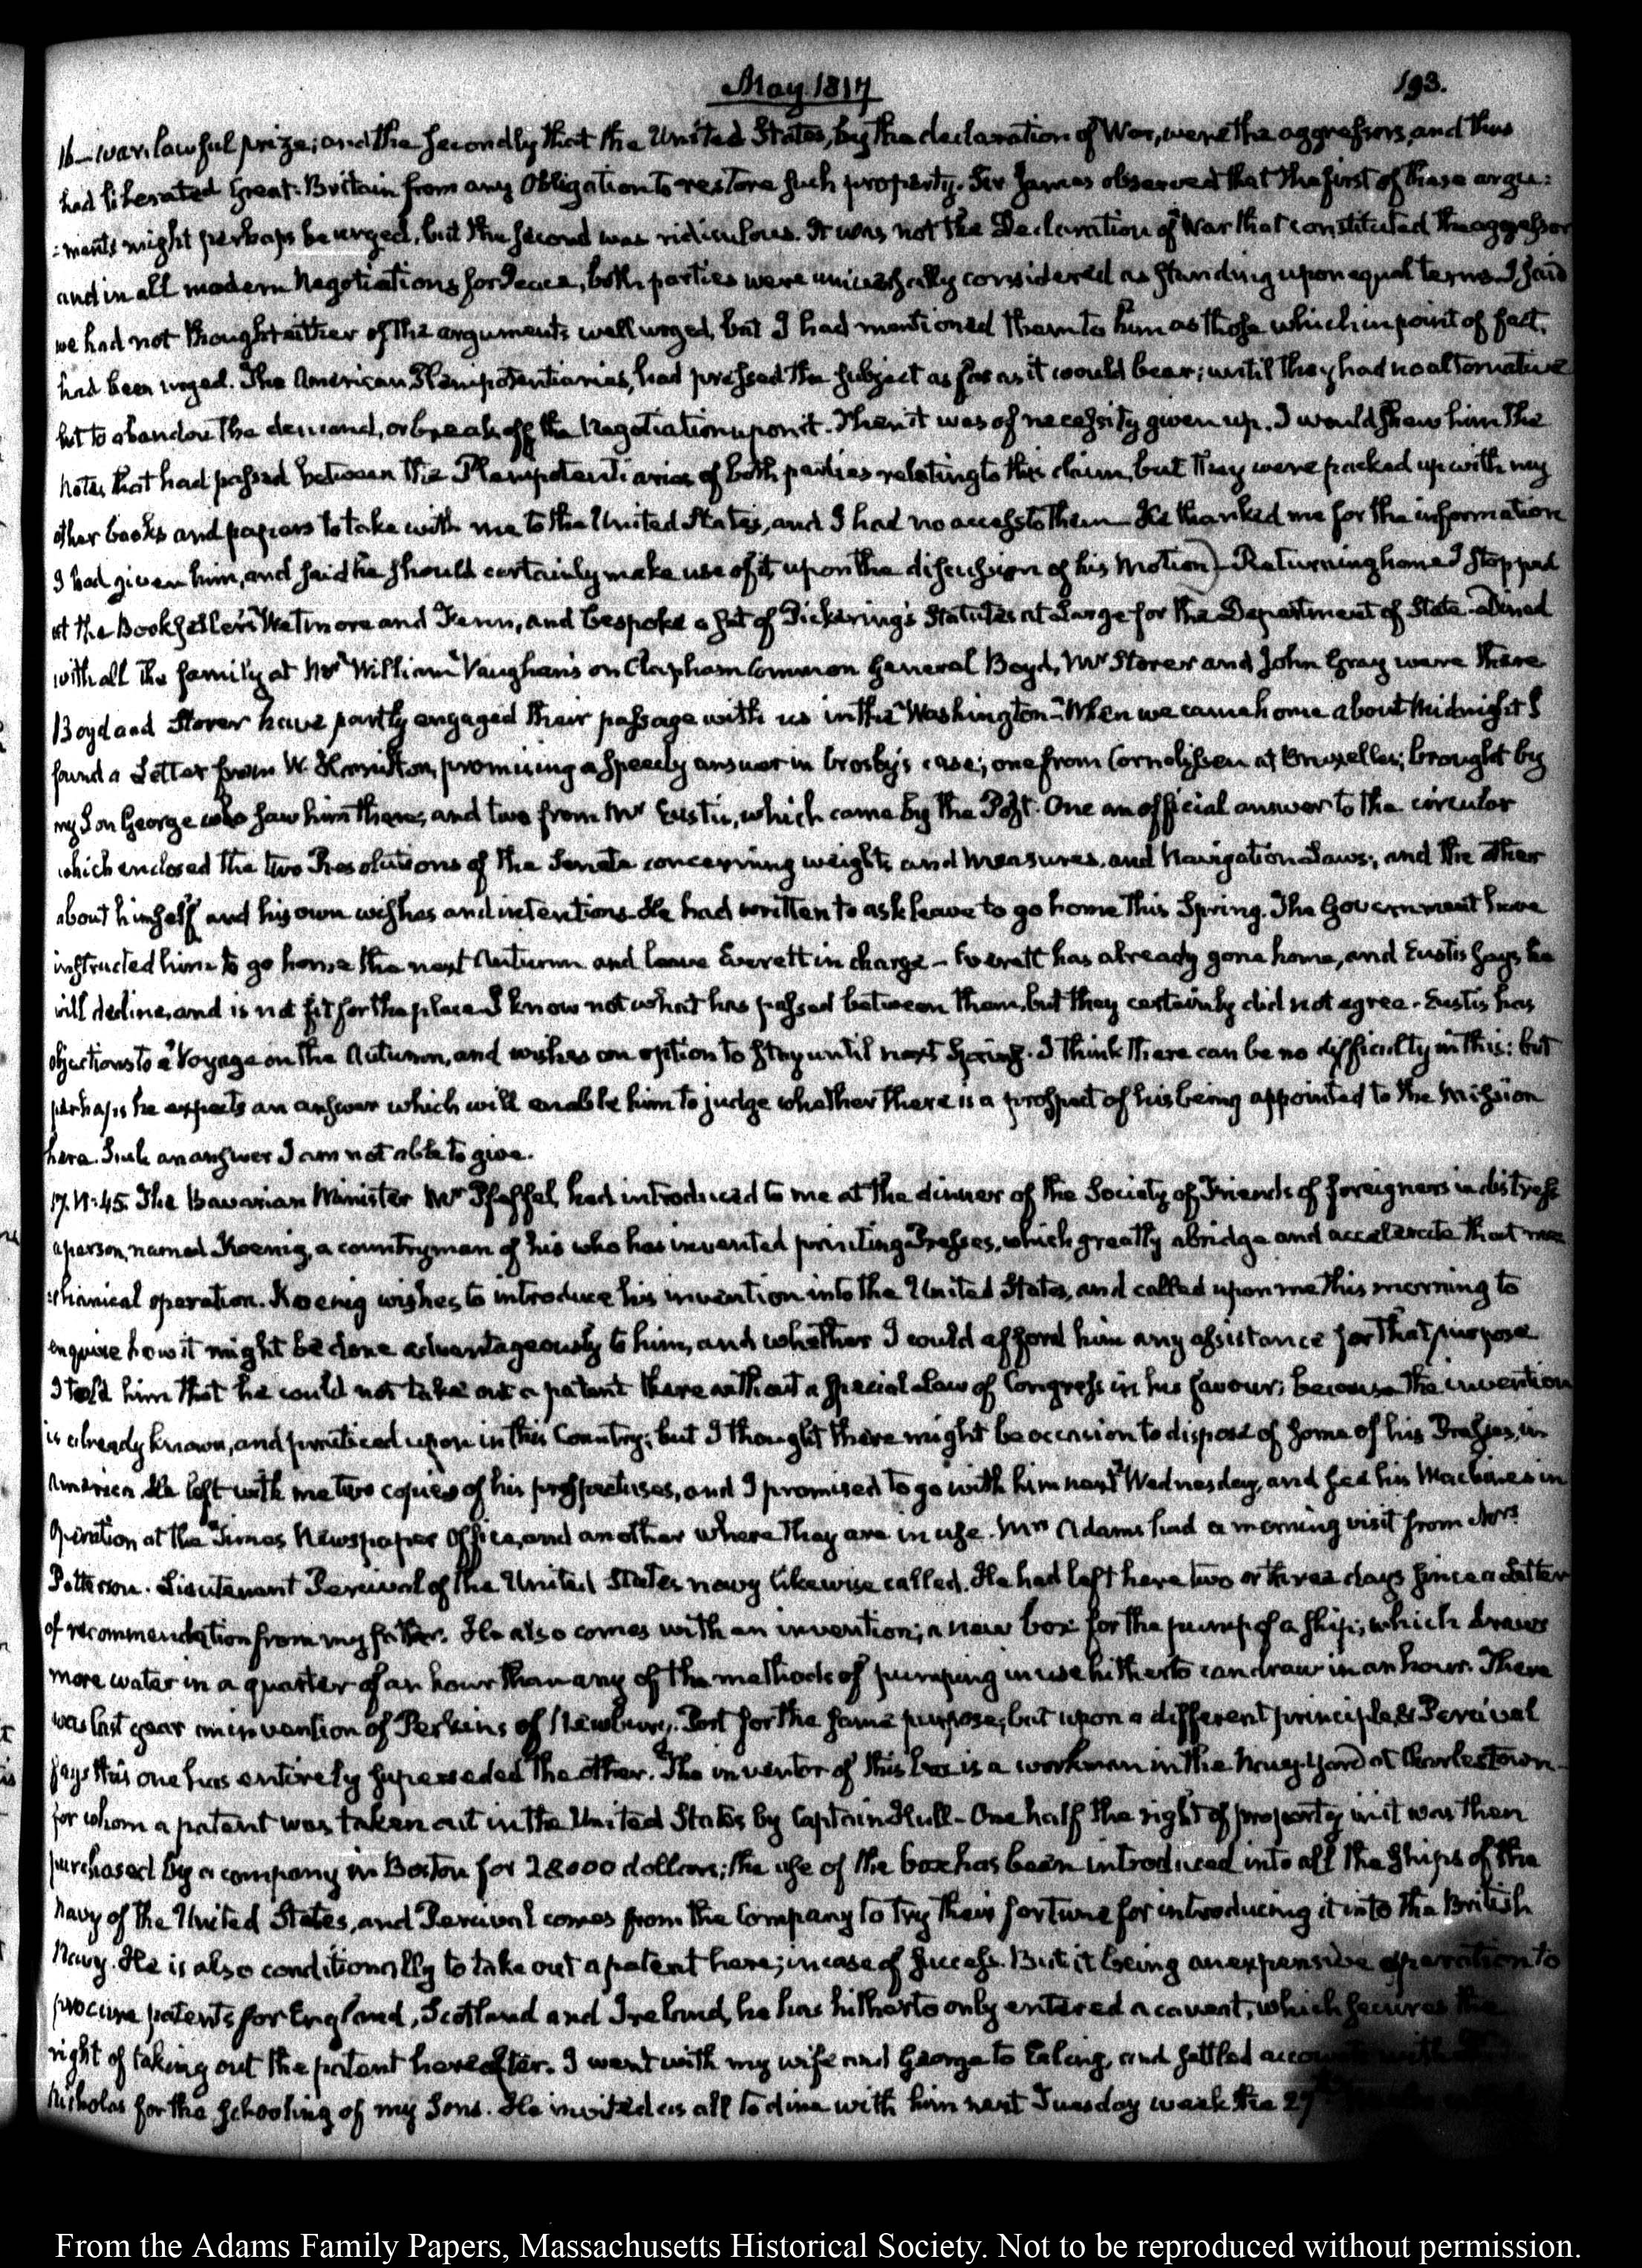 May 1817
193.
16— war, lawful prize; and the secondly that the United States, by the declaration of War, were the aggressors, and thus
had liberated Great-Britain from any Obligation to restore such property. Sir James observed that the first of these argu:
:ments might perhaps be urged, but the second was ridiculous. It was not the Declaration of War that constituted the aggressor
and in all modern Negotiations for Peace, both parties were universally considered as standing upon equal terms. I said
we had not thought either of the arguments well urged, but I had mentioned them to him as those which in point of fact,
had been urged. The American Plenipotentiaries, had pressed the subject as far as it would bear; until they had no alternative
but to abandon the demand, or break off the Negotiation upon it. Then it was of necessity given up. I would shew him the
Notes that had passed between the Plenipotentiaries of both parties relating to this claim, but they were packed up with my
other books and papers to take with me to the United States, and I had no access to them— He thanked me for the information
I had given him, and said he should certainly make use of it, upon the discussion of his Motion)— Returning home I stopped
at the Bookseller's Wetmore and Fenn, and bespoke a set of Pickering's Statutes at Large for the Department of State. Dined
with all the family at Mr William Vaughan's on Clapham Common General Boyd, Mr Storer and John Gray were there
Boyd and Storer have partly engaged their passage with us in the Washington— When we came home about Midnight I
found a Letter from W. Hamilton, promising a speedy answer in Crosby's case; one from Cornelissen at Bruxelles; brought by
my Son George who saw him there, and two from Mr Eustis, which came by the Post. One an official answer to the circular
which enclosed the two Resolutions of the Senate concerning weights and measures, and Navigation Laws; and the other
about himself and his own wishes and intentions. He had written to ask leave to go home this Spring. The Government have
instructed him to go home the next Autumn and leave Everett in charge— Everett has already gone home, and Eustis says he
will decline, and is not fit for the place. I know not what has passed between them, but they certainly did not agree. Eustis has
objections to a Voyage on the Autumn, and wishes an option to stay until next Spring. I think there can be no difficulty in this: but
perhaps he expects an answer which will enable him to judge whether there is a prospect of his being appointed to the Mission
here. Such an answer I am not able to give.
17. V:45. The Bavarian Minister Mr Pfeffel, had introduced to me at the dinner of the Society of Friends of foreigners in distress
a person, named Koenig, a countryman of his who has invented printing Presses, which greatly abridge and accelerate that me
:chanical operation. Koenig wishes to introduce his invention into the United States, and called upon me this morning to
enquire how it might be done advantageously to him, and whether I could afford him any assistance for that purpose
I told him that he could not take out a patent there without a special Law of Congress in his favour; because the invention
is already known, and practiced upon in this Country; but I thought there might be occasion to dispose of some of his Presses, in
America. He left with me two copies of his prospectuses, and I promised to go with him next Wednesday, and see his Machines in
Operation at the Times Newspaper Office, and another where they are in use. Mrs Adams had a morning visit from Mrs
Patterson. Lieutenant Percival of the United States navy likewise called. He had left here two or three days since a Letter
of recommendation from my father. He also comes with an invention; a new box for the pump of a ship; which draws
more water in a quarter of an hour than any of the methods of pumping in use hitherto can draw in an hour. There
was last year an invention of Perkins of Newbury-Port for the same purpose; but upon a different principle, & Percival
says this one has entirely superseded the other. The inventor of this box is a workman in the Navy-Yard at Charlestown—
for whom a patent was taken out in the United States by Captain Hull— One half the right of property in it was then
purchased by a company in Boston for 28000 dollars; the use of the box has been introduced into all the ships of the
Navy of the United States, and Percival comes from the Company to try their fortune for introducing it into the British
Navy. He is also conditionally to take out a patent here; in case of success. But it being an expensive operation to
procure patents for England, Scotland and Ireland, he has hitherto only entered a caveat, which secures the
right of taking out the patent hereafter. I went with my wife and George to Ealing, and settled accounts with
Nicholas for the schooling of my Sons. He invited us all to dine with him next Tuesday week the 27th
From the Adams Family Papers, Massachusetts Historical Society. Not to be reproduced without permission.